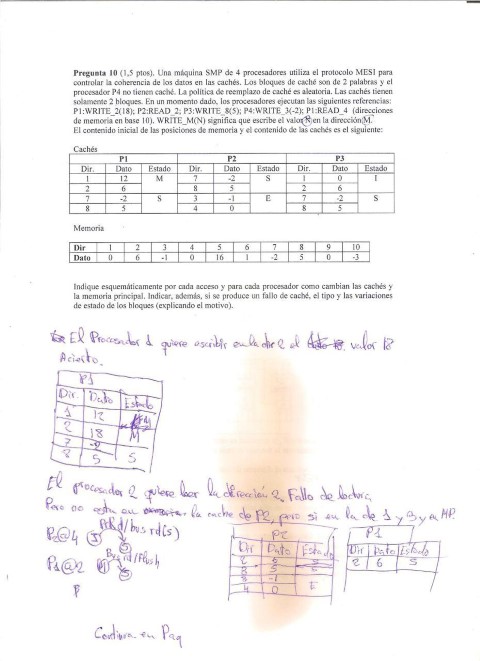 Pregunta 10 (1,5 ptos). Una máquina SMP de 4 procesadores utiliza el protocolo MESI para
controlar la coherencia de los datos en las cachés. Los bloques de caché son de 2 palabras y el
procesador P4 no tienen caché. La política de reemplazo de caché es aleatoria. Las cachés tienen
solamente 2 bloques. En un momento dado, los procesadores ejecutan las siguientes referencias:
P1:WRITE_2(18); P2:READ_2; P3:WRITE_8(5); P4:WRITE_3(-2); P1:READ_4 (direcciones
de memoria en base 10). WRITE_M(N) significa que escribe el valor N en la dirección M.
El contenido inicial de las posiciones de memoria y el contenido de las cachés es el siguiente:
Cachés
P1 P2 P3
Dir. Dato Estado Dir. Dato Estado Dir. Dato Estado
1 12 M 7 -2 S 1 0 I
2 6 8 5 2 6
7 -2 S 3 -1 E 7 -2 S
8 5 4 0 8 5
Memoria
Dir 1 2 3 4 5 6 7 8 9 10
Dato 0 6 -1 0 16 1 -2 5 0 -3
Indique esquemáticamente por cada acceso y para cada procesador como cambian las cachés y
la memoria principal. Indicar, además, si se produce un fallo de caché, el tipo y las variaciones
de estado de los bloques (explicando el motivo).
El Procesador 1 quiere escribir en la dir 2 el valor 18
Acierto.
P1
Dir. Dato Estado
1 12
2 18 M
7 -2
8 5 S
El procesador 2 quiere leer la dirección 2. Fallo de lectura,
Pero no esta en la cache de P2, pero si en la de 1 y 3 y en MP.
P2 P1
Dir Dato Estado Dir Dato Estado
2 6 S
3 -1
4 0 E
Continua en Pag